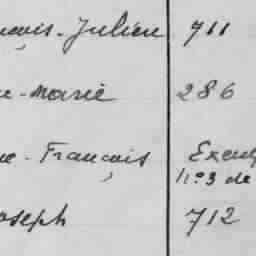 nçois-Julien 711
e-Marie 286
ne-François Exemp
n°3 de
oseph 712